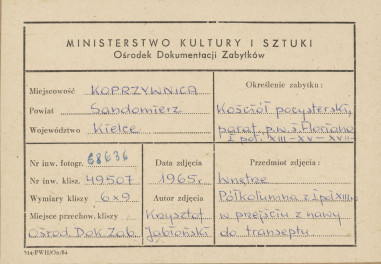 MINISTERSTWO KULTURY I SZTUKI
Ośrodek Dokumentacji Zabytków
Miejscowość KOPRZYWNICA
Powiat Sandomierz
Województwo Kielce
Określenie zabytku:
Kościół pocysterski,
paraf. p.w. s. Floriana
I poł. XIII-XV-XVII
Nr inw. fotogr. 68636
Nr inw. klisz. 49507
Wymiary kliszy 6x9
Miejsce przechow. kliszy
Ośrod. Dok. Zab.
Data zdjęcia
1965r.
Autor zdjęcia
Krzysztof
Jabłoński
Przedmiot zdjęcia:
Wnętrze
Półkolumna z I poł XIII w.
w przejściu z nawy
do transeptu